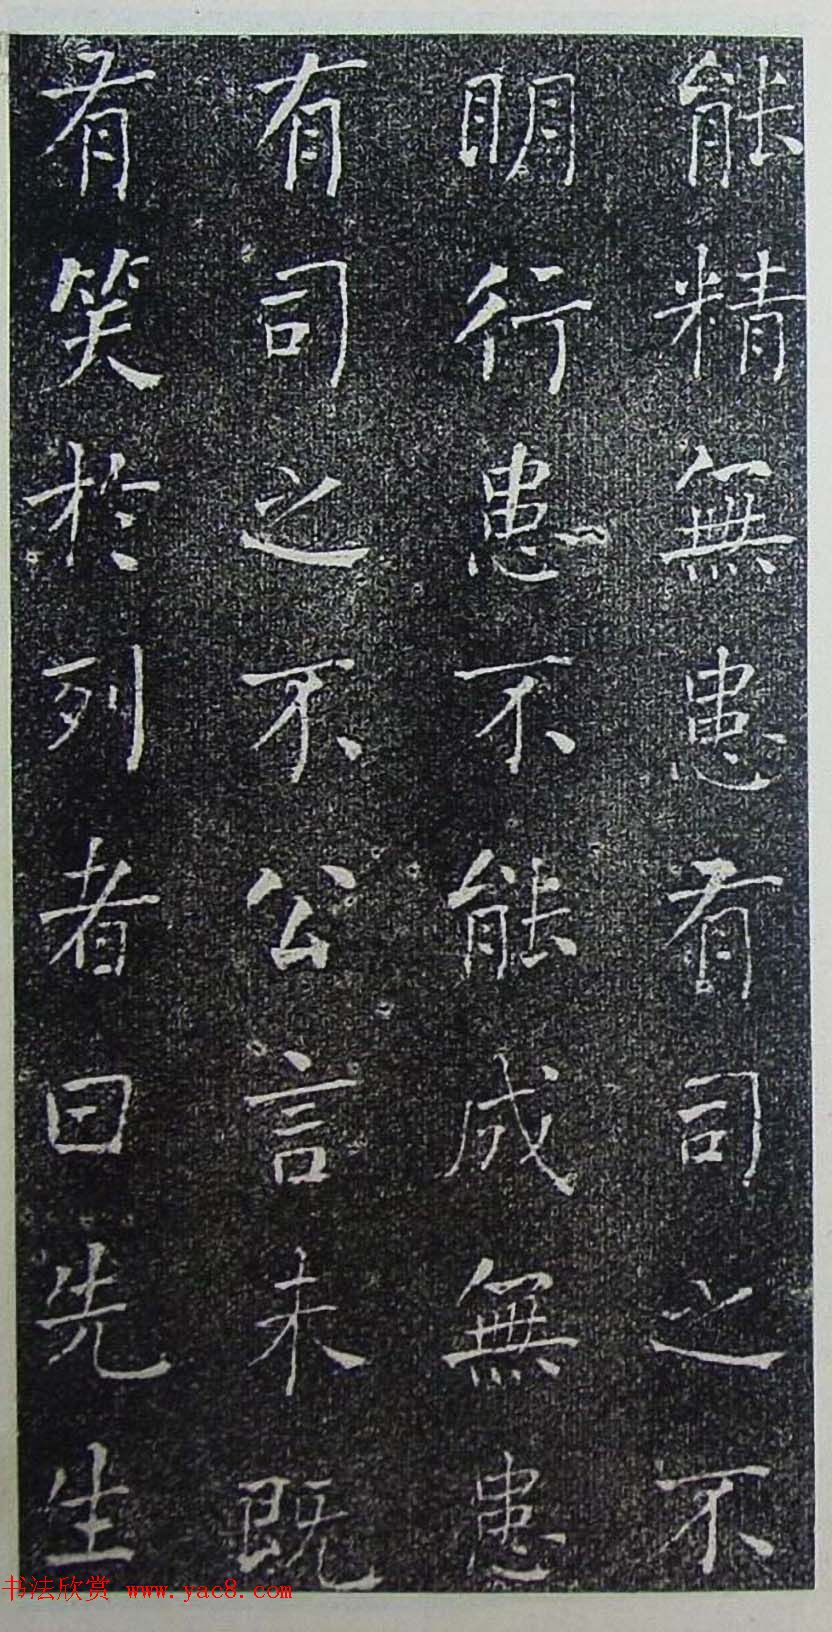 能精無患有司之不
明行患不能成無患
有司之不公言未既
有笑於列者曰先生
书法欣赏 www.yac8.com